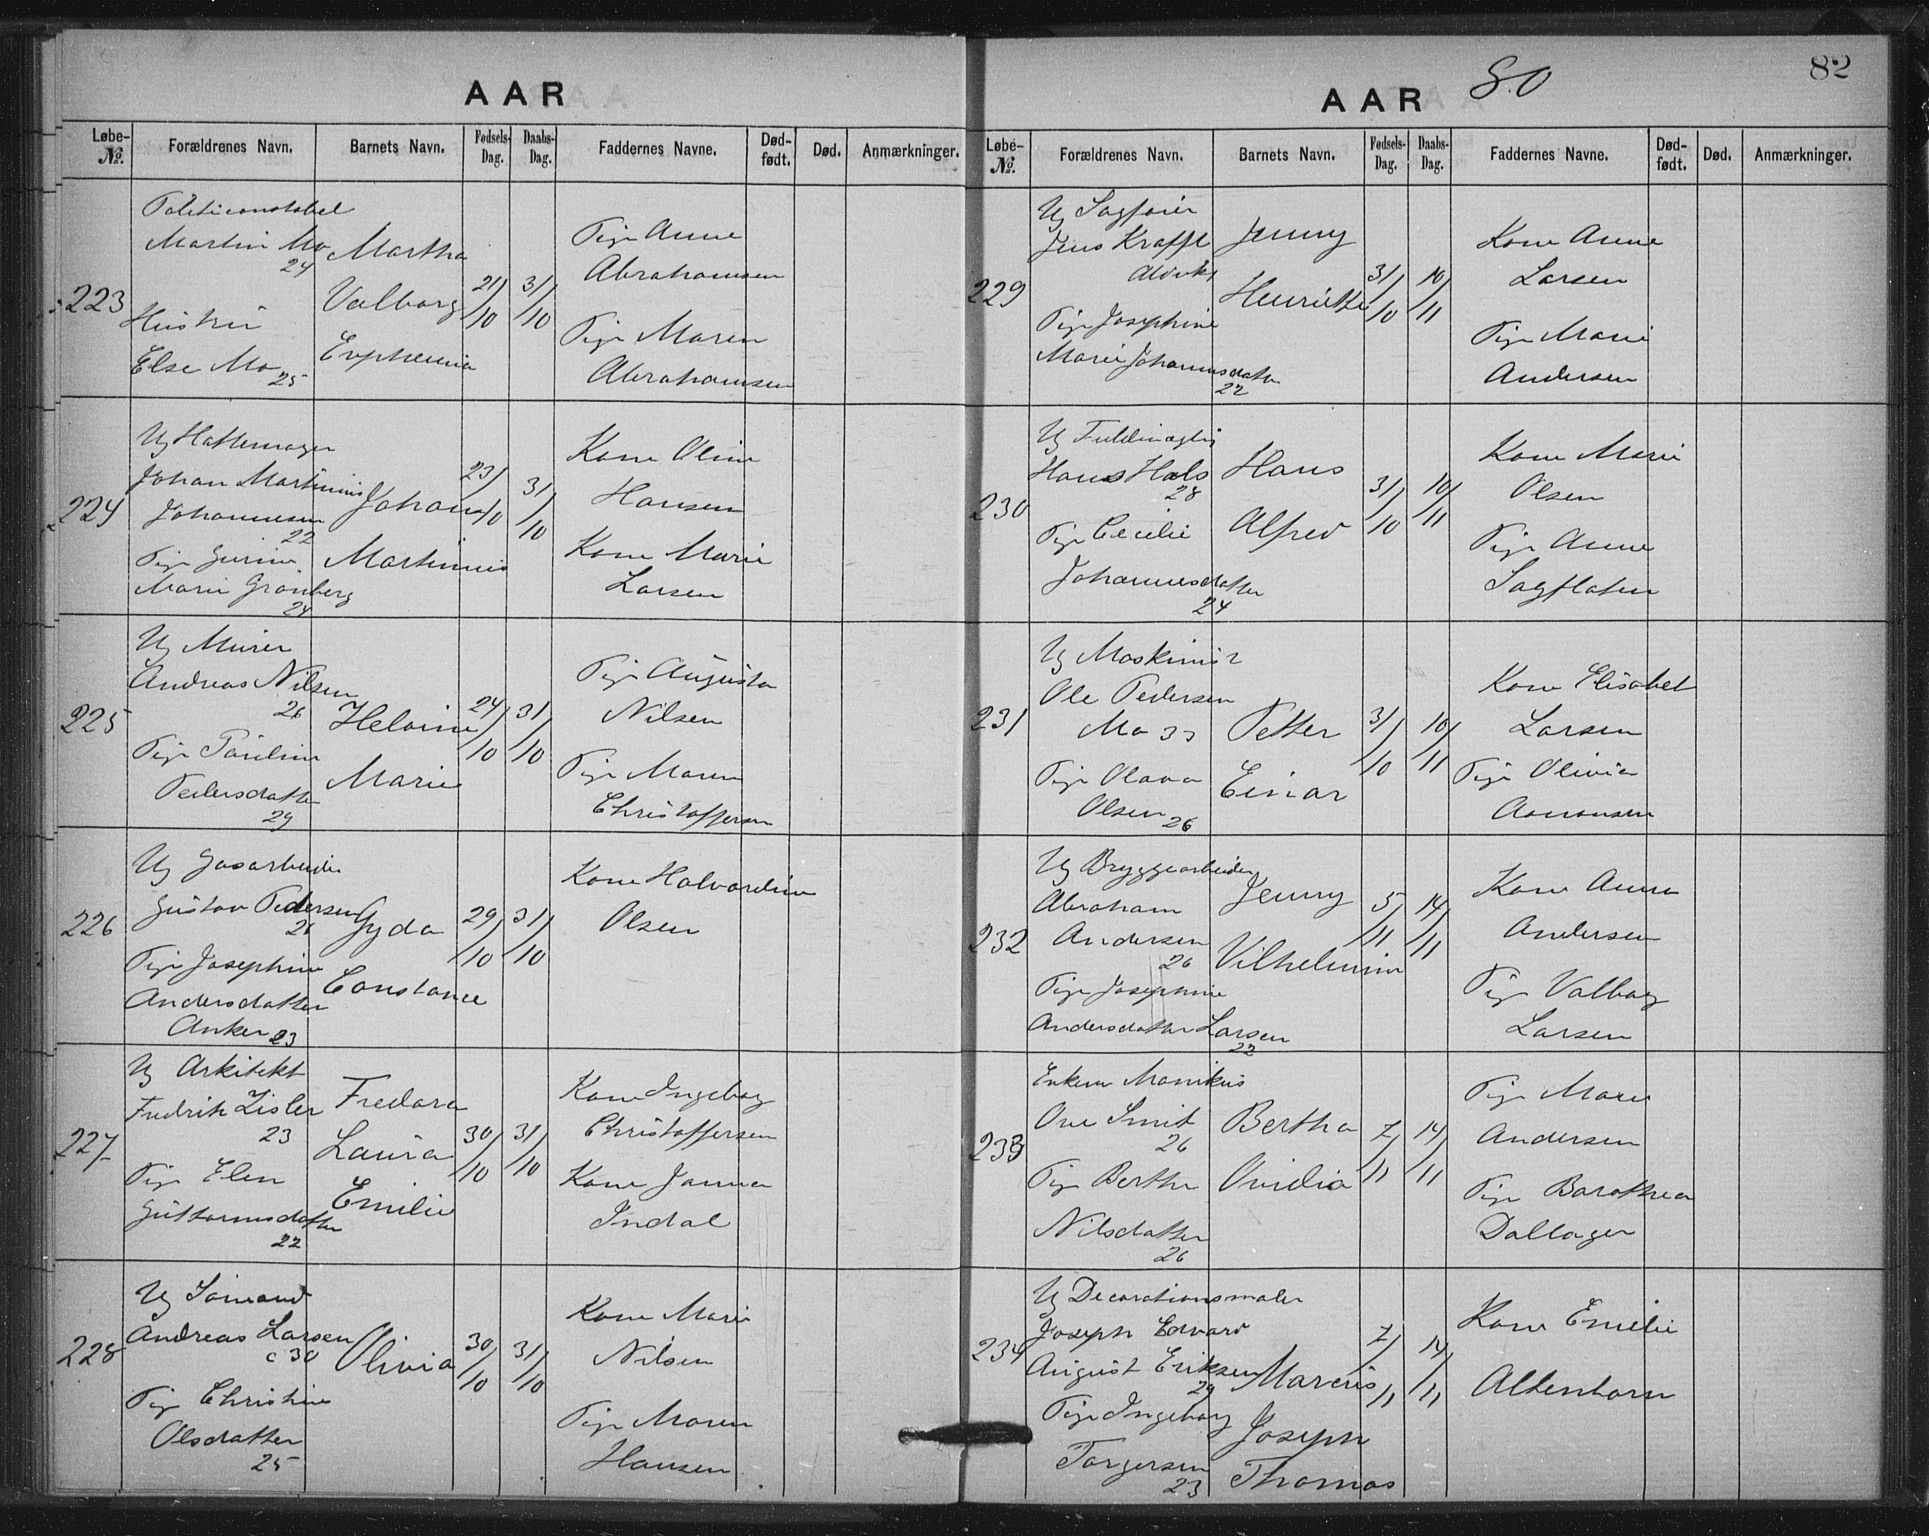 AAR
Løbe-№. Forældrenes Navn. Barnets Navn. Fødsels-Dag. Daabs-Dag. Faddernes Navne. Død-født. Død. Anmærkninger.
223
Politiconstabel
Martin Mo
24
Hustru
Else Mo
25
Martha
Valborg
Evphemia
21/10
31/10
Pige Anne
Abrahamsen
Pige Maren
Abrahamsen
224
Ug Hattemager
Johan Martinius
Johannesen
22
Pige Gurine
Marie Grønberg
24
Johan
Martinius
23/10
31/10
Kone Oline
Hansen
Kone Marie
Larsen
225
Ug Murer
Andreas Nilsen
26
Pige Pauline
Pedersdatter
29
Helvine
Marie
24/10
31/10
Pige Augusta
Nilsen
Pige Maren
Christoffersen
226
Ug Gasarbeider
Gustav Pedersen
21
Pige Josephine
Andersdatter
Anker 23
Gyda
Constance
29/10
31/10
Kone Halvardine
Olsen
227
Ug Arkitekt
Fredrik Zisler
23
Pige Elen
Guttormsdatter
22
Fredara
Laura
Emilie
30/10
31/10
Kone Ingeborg
Christoffersen
Kone Janna
Indal
228
Ug Sømand
Andreas Larsen
c 30
Pige Christine
Olsdatter
25
Olivia
30/10
31/10
Kone Marie
Nilsen
Pige Maren
Hansen
AAR 80
82
Løbe-№. Forældrenes Navn. Barnets Navn. Fødsels-Dag. Daabs-Dag. Faddernes Navne. Død-født. Død. Anmærkninger.
229
Ug Sagfører
Jens Krafft
Pige Josephine
Marie Johannesdatter
22
Jenny
Henriette
31/10
10/11
Kone Anne
Larsen
Pige Marie
Andersen
230
Ug Fuldmægtig
Hans Hals
28
Pige Cecilie
Johannesdatter
24
Hans
Alfred
31/10
10/11
Kone Marie
Olsen
Pige Anne
Sagflaten
231
Ug Maskinist
Ole Pedersen
Mo 33
Pige Olava
Olsen 26
Petter
Einar
31/10
10/11
Kone Elisabet
Larsen
Pige Olivia
Aaronsen
232
Ug Bryggearbeider
Abraham
Andersen
26
Pige Josephine
Andersdatter Larsen
22
Jenny
Vilhelmine
5/11
14/11
Kone Anna
Andersen
Pige Valborg
Larsen
233
Enkem
Ove Smit
26
Pige Berthe
Nilsdatter
26
Bertha
Ovidia
7/11
14/11
Pige Marie
Andersen
Pige Barothea
Dallager
234
Ug Decorationsmaler
Joseph Edvard
August Eriksen
29
Pige Ingeborg
Torgersen
23
Marcus
Joseph
Thomas
7/11
14/11
Kone Emilie
Altenborn